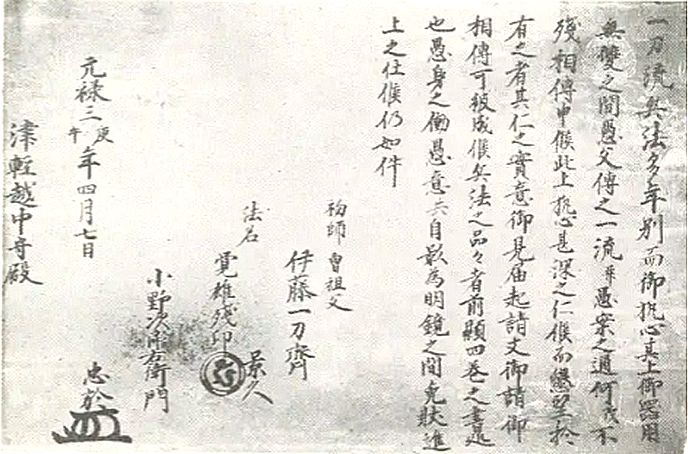 一刀流兵法多年別而御執心其上御器用
無雙之間愚父傳之一流并愚案之通何茂不
残相傳申候此上執心甚深之仁候而懇望於
有之者其仁之實意御見届起請文御請御
相傳可被成候兵法之品々者前顕四巻之書
也愚身之働愚意共自為明鏡之間免状進
上之仕候仍如件
初師曽祖父
伊藤一刀齊
景久
法名
覚雄残印
小野次郎右衛門
忠於
元禄三庚午年四月七日
津輕越中守殿